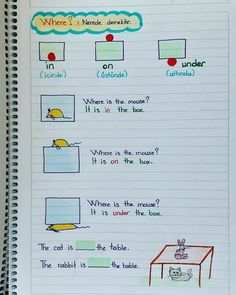 Where? : Nerede demektir.
in on under
(içinde) (üstünde) (altında)
Where is the mouse?
It is in the box.
Where is the mouse?
It is on the box.
Where is the mouse?
It is under the box.
The cat is the table.
The rabbit is the table.